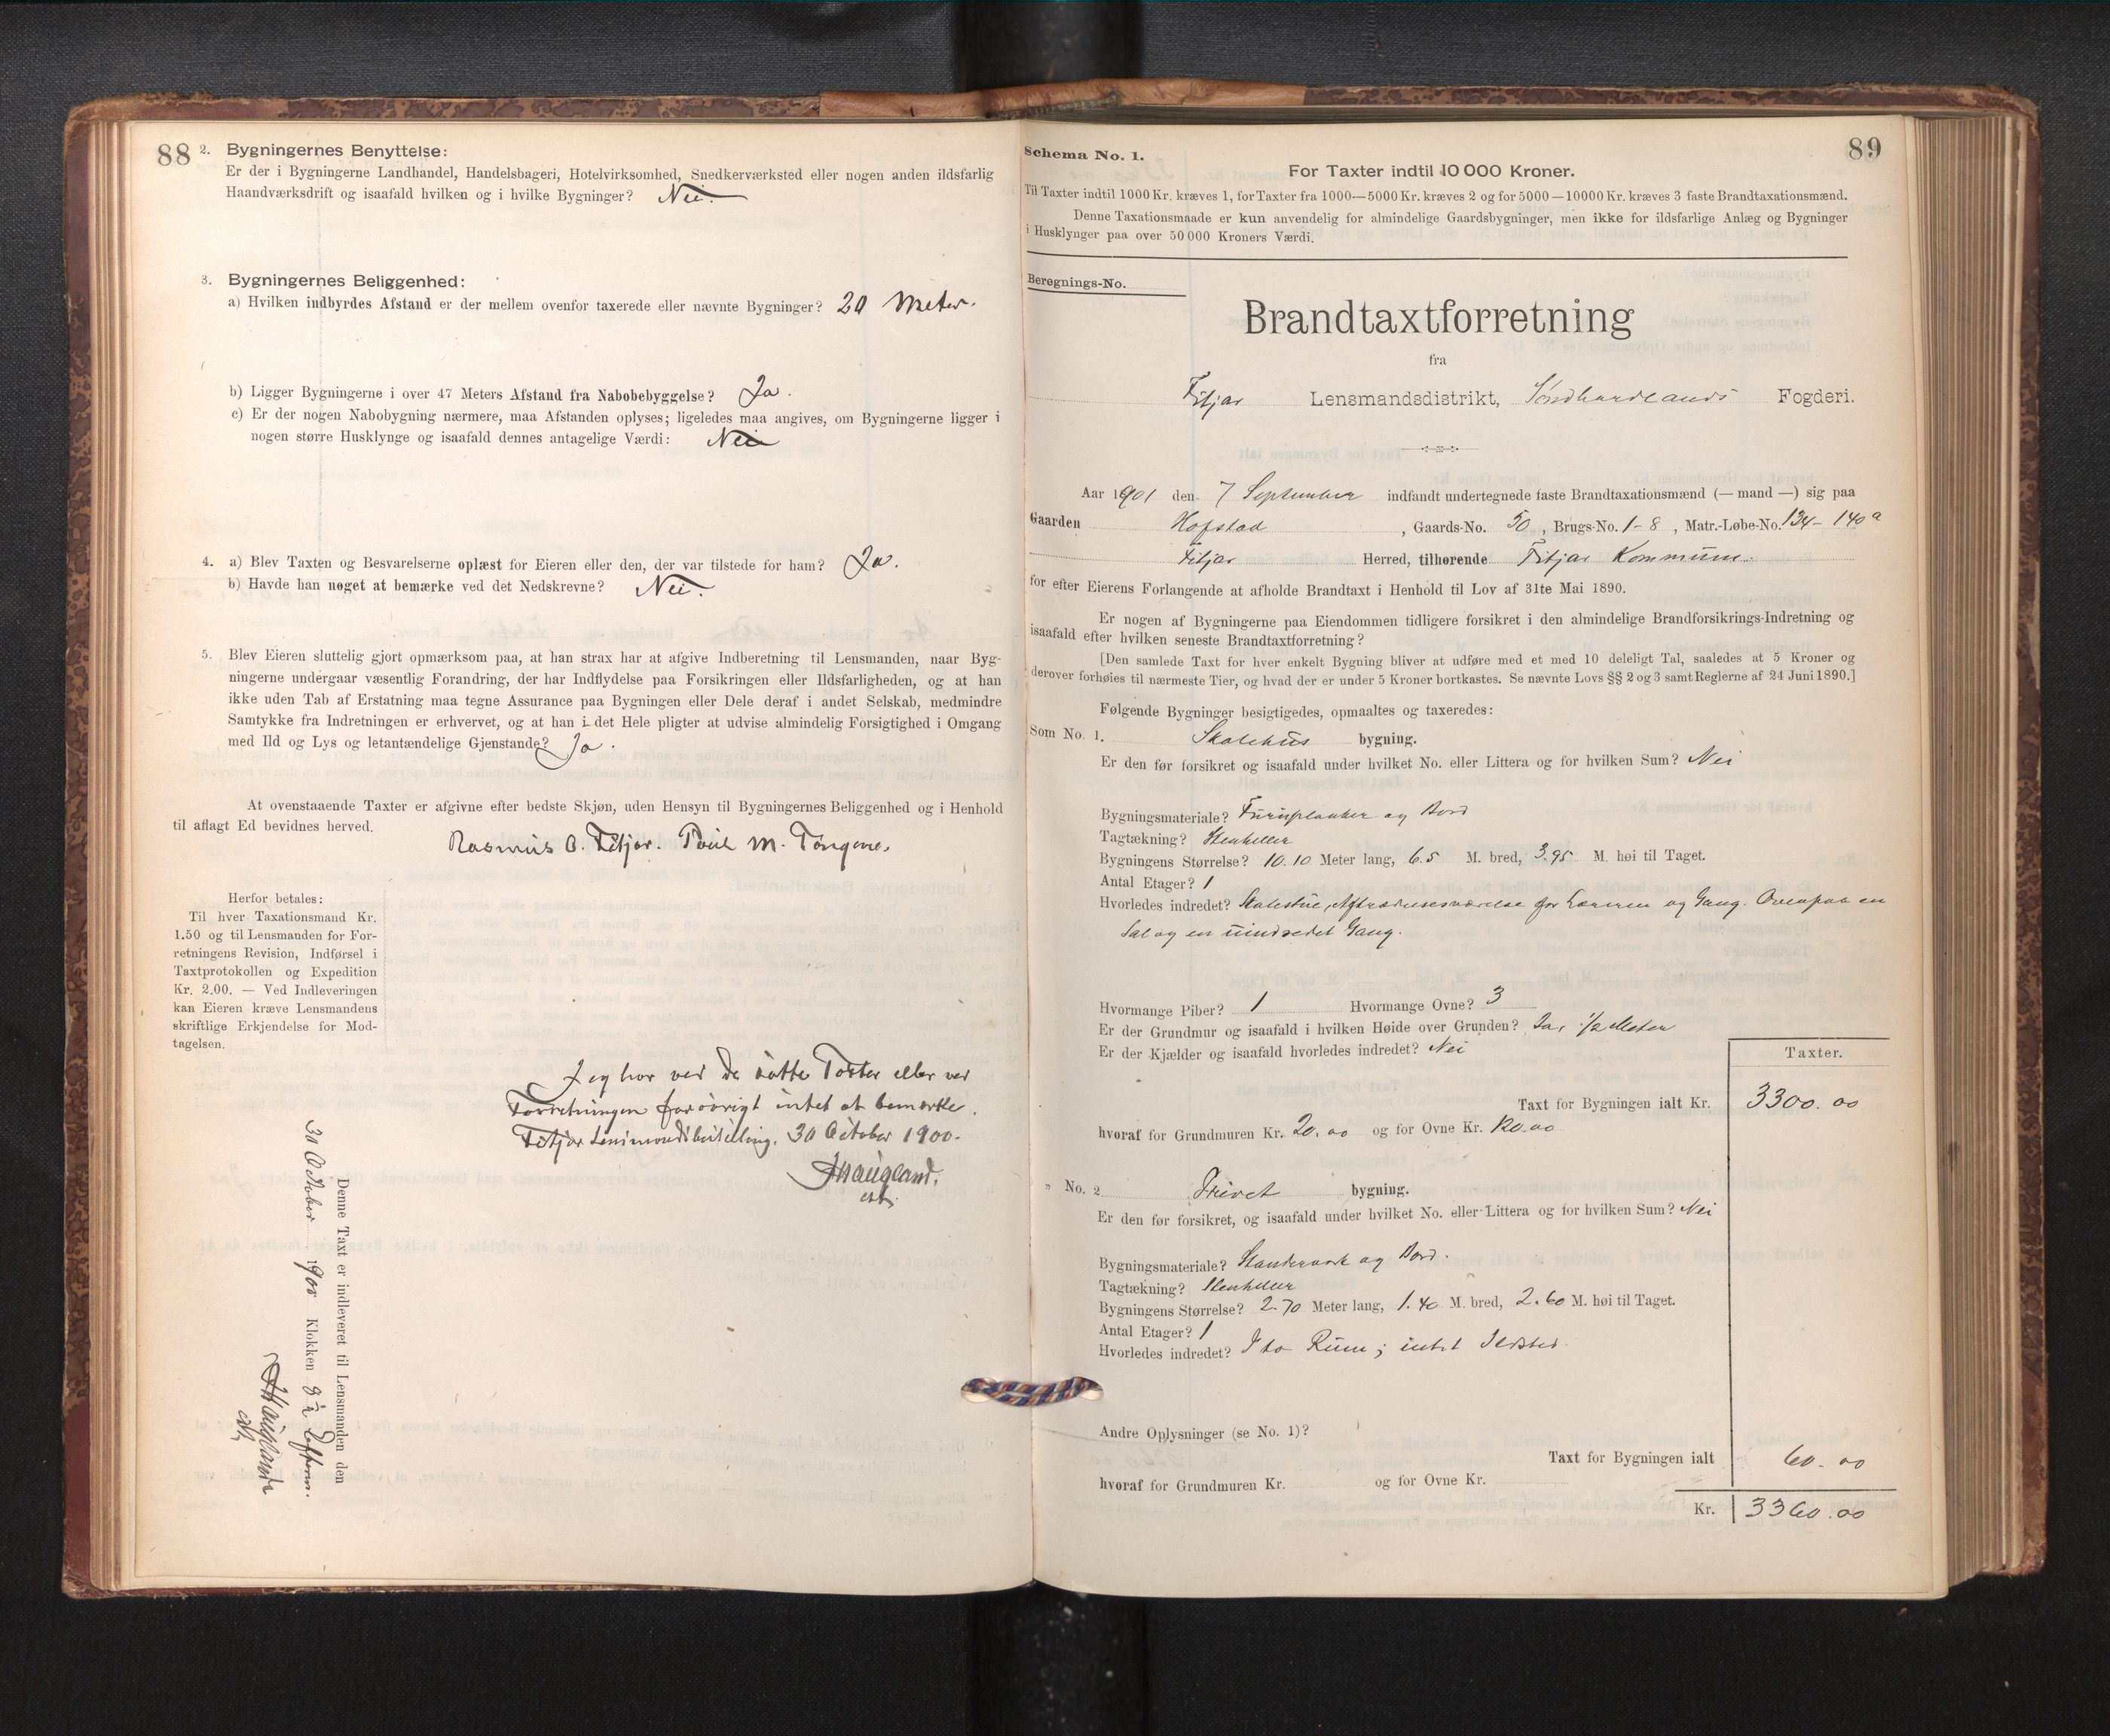 88
2. Bygningernes Benyttelse:
Er der i Bygningerne Landhandel, Handelsbageri, Hotelvirksomhed, Snedkerværksted eller nogen anden ildsfarlig
Haandværksdrift og isaafald hvilken og i hvilke Bygninger? Nei.
3. Bygningernes Beliggenhed:
a) Hvilken indbyrdes Afstand er der mellem ovenfor taxerede eller nævnte Bygninger? 20 Meter.
b) Ligger Bygningerne i over 47 Meters Afstand fra Nabobebyggelse? Ja.
c) Er der nogen Nabobygning nærmere, maa Afstanden oplyses; ligeledes maa angives, om Bygningerne ligger i
nogen større Husklynge og isaafald dennes antagelige Værdi: Nei
4. a) Blev Taxten og Besvarelserne oplæst for Eieren eller den, der var tilstede for ham? Ja.
b) Havde han noget at bemærke ved det Nedskrevne? Nei.
5. Blev Eieren sluttelig gjort opmærksom paa, at han strax har at afgive Indberetning til Lensmanden, naar Byg-
ningerne undergaar væsentlig Forandring, der har Indflydelse paa Forsikringen eller Ildsfarligheden, og at han
ikke uden Tab af Erstatning maa tegne Assurance paa Bygningen eller Dele deraf i andet Selskab, medmindre
Samtykke fra Indretningen er erhvervet, og at han i det Hele pligter at udvise almindelig Forsigtighed i Omgang
med Ild og Lys og letantændelige Gjenstande? Ja.
At ovenstaaende Taxter er afgivne efter bedste Skjøn, uden Hensyn til Bygningernes Beliggenhed og i Henhold
til aflagt Ed bevidnes herved.
Rasmus O. Fitjar. Poul M. Tongene.
Herfor betales:
Til hver Taxationsmand Kr.
1.50 og til Lensmanden for For-
retningens Revision, Indførsel i
Taxtprotokollen og Expedition
Kr. 2.00. — Ved Indleveringen
kan Eieren kræve Lensmandens
skriftlige Erkjendelse for Mod-
tagelsen.
Jeg har ved de satte Taxter eller ved
Forretningen forøvrigt intet at bemærke.
Fitjar Lensmandsbestilling, 30 October 1900.
JHaugland.
cst.
Denne Taxt er indleveret til Lensmanden den
30 October 1900 Klokken 8½ Efterm.
JHaugland
cst.
89
Schema No. 1.
For Taxter indtil 10 000 Kroner.
Til Taxter indtil 1000 Kr. kræves 1, for Taxter fra 1000—5000 Kr. kræves 2 og for 5000—10000 Kr. kræves 3 faste Brandtaxationsmænd.
Denne Taxationsmaade er kun anvendelig for almindelige Gaardsbygninger, men ikke for ildsfarlige Anlæg og Bygninger
i Husklynger paa over 50 000 Kroners Værdi.
Beregnings-No.
Brandtaxtforretning
fra
Fitjar Lensmandsdistrikt, Søndhordlands Fogderi.
Aar 1901 den 7 September indfandt undertegnede faste Brandtaxationsmænd (— mand —) sig paa
Gaarden Hofstad, Gaards-No. 50, Brugs-No. 1-8, Matr.-Løbe-No. 134-140a
Fitjar Herred, tilhørende Fitjar Kommune.
for efter Eierens Forlangende at afholde Brandtaxt i Henhold til Lov af 31te Mai 1890.
Er nogen af Bygningerne paa Eiendommen tidligere forsikret i den almindelige Brandforsikrings-Indretning og
isaafald efter hvilken seneste Brandtaxtforretning?
[Den samlede Taxt for hver enkelt Bygning bliver at udføre med et med 10 deleligt Tal, saaledes at 5 Kroner og
derover forhøies til nærmeste Tier, og hvad der er under 5 Kroner bortkastes. Se nævnte Lovs §§ 2 og 3 samt Reglerne af 24 Juni 1890.]
Følgende Bygninger besigtigedes, opmaaltes og taxeredes:
Som No. 1. Skolehus bygning.
Er den før forsikret og isaafald under hvilket No. eller Littera og for hvilken Sum? Nei
Bygningsmateriale? Furuplanker og Bord
Tagtækning? Stenheller
Bygningens Størrelse? 10.10 Meter lang, 6.5 M. bred, 3.95 M. høi til Taget.
Antal Etager? 1
Hvorledes indredet? Skolestue, Aftrædelsesværelse for Læreren og Gang. Ovenpaa en
Sal og en uindredet Gang.
Hvormange Piber? 1 Hvormange Ovne? 3
Er der Grundmur og isaafald i hvilken Høide over Grunden? Ja, 1/2 Meter
Er der Kjælder og isaafald hvorledes indredet? Nei
Taxter.
Taxt for Bygningen ialt Kr. 3300.00
hvoraf for Grundmuren Kr. 20.00 og for Ovne Kr. 120.00
" No. 2 Privet bygning.
Er den før forsikret, og isaafald under hvilket No. eller Littera og for hvilken Sum? Nei
Bygningsmateriale? Standerværk og Bord.
Tagtækning? Stenheller
Bygningens Størrelse? 2.70 Meter lang, 1.40 M. bred, 2.60 M. høi til Taget.
Antal Etager? 1
Hvorledes indredet? I to Rum; intet Ildsted.
Andre Oplysninger (se No. 1)?
Taxt for Bygningen ialt 60.00
hvoraf for Grundmuren Kr. og for Ovne Kr.
Kr. 3360.00